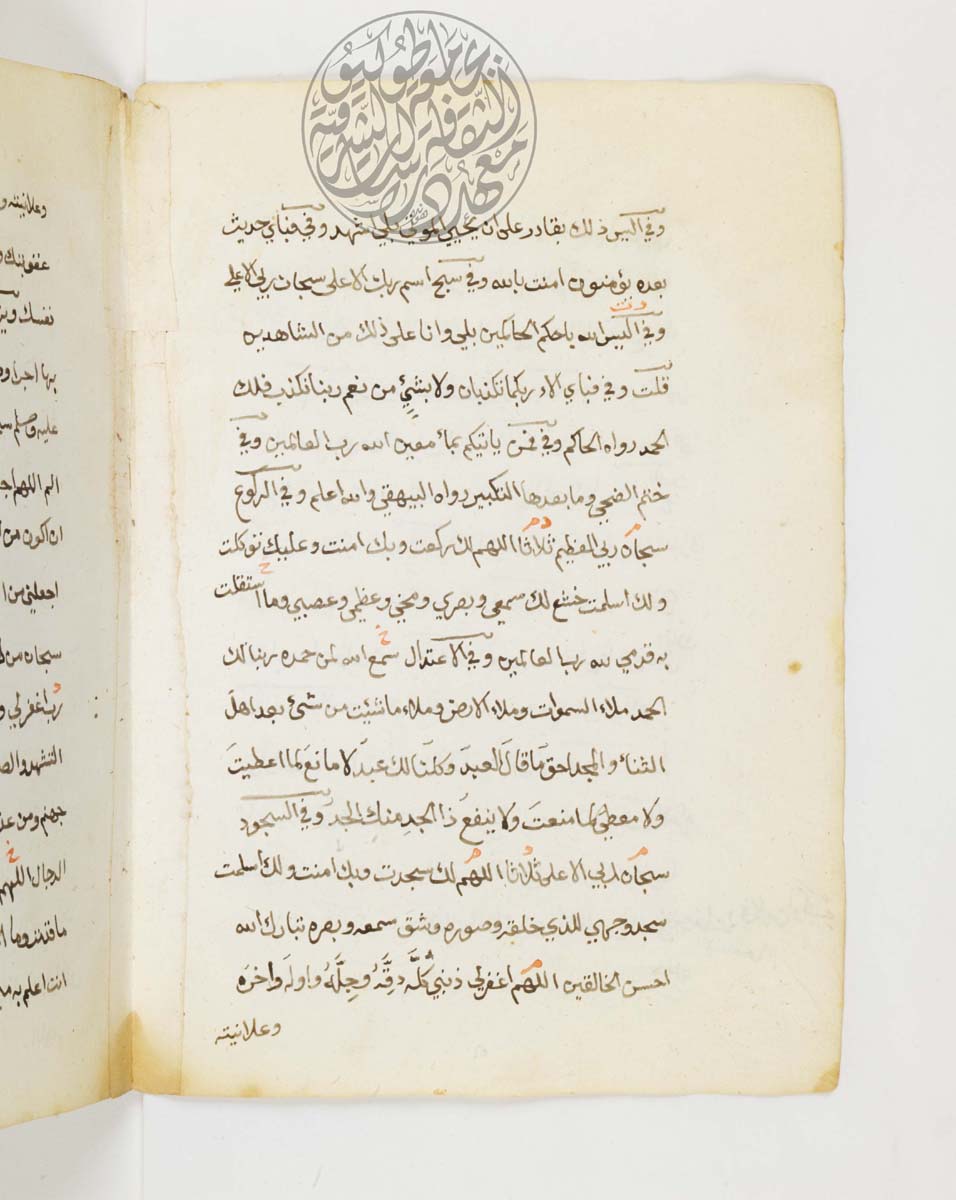 وفي اليس ذلك بقادر على ان يحيي الموتى بلى اشهد وفي فباي حديث
بعده يؤمنون امنت بالله وفي سبح اسم ربك الاعلى سبحان ربي الاعلى
دت
وفي اليس الله باحكم الحاكمين بلى وانا على ذلك من الشاهدين
قلت وفي فباي الاء ربكما تكذبان ولا بشيء من نعم ربنا نكذب فلك
الحمد رواه الحاكم وفي فمن ياتيكم بماء معين الله رب العالمين وفي
ختم الضحى وما بعدها التكبير رواه البيهقي والله اعلم وفي الركوع
سبحان ربي العظيم ثلاثا اللهم لك ركعت وبك امنت وعليك توكلت
ولك اسلمت خشع لك سمعي وبصري ومخي وعظمي وعصبي وما استقلت
به قدمي لله رب العالمين وفي الاعتدال سمع الله لمن حمده ربنا لك
الحمد ملاء السموات وملاء الارض وملاء ما شئت من شئ بعد اهل
الثناء والمجد احق ما قال العبد وكلنا لك عبد لا مانع لما اعطيت
ولا معطي لما منعت ولا ينفع ذا الجد منك الجد وفي السجود
سبحان ربي الاعلى ثلاثا اللهم لك سجدت وبك امنت ولك اسلمت
سجد وجهي للذي خلقه وصوره وشق سمعه وبصره تبارك الله
احسن الخالقين اللهم اغفر لي ذنبي كُلَّه دِقَّهُ وجِلَّهُ واوله واخره
وعلانيته